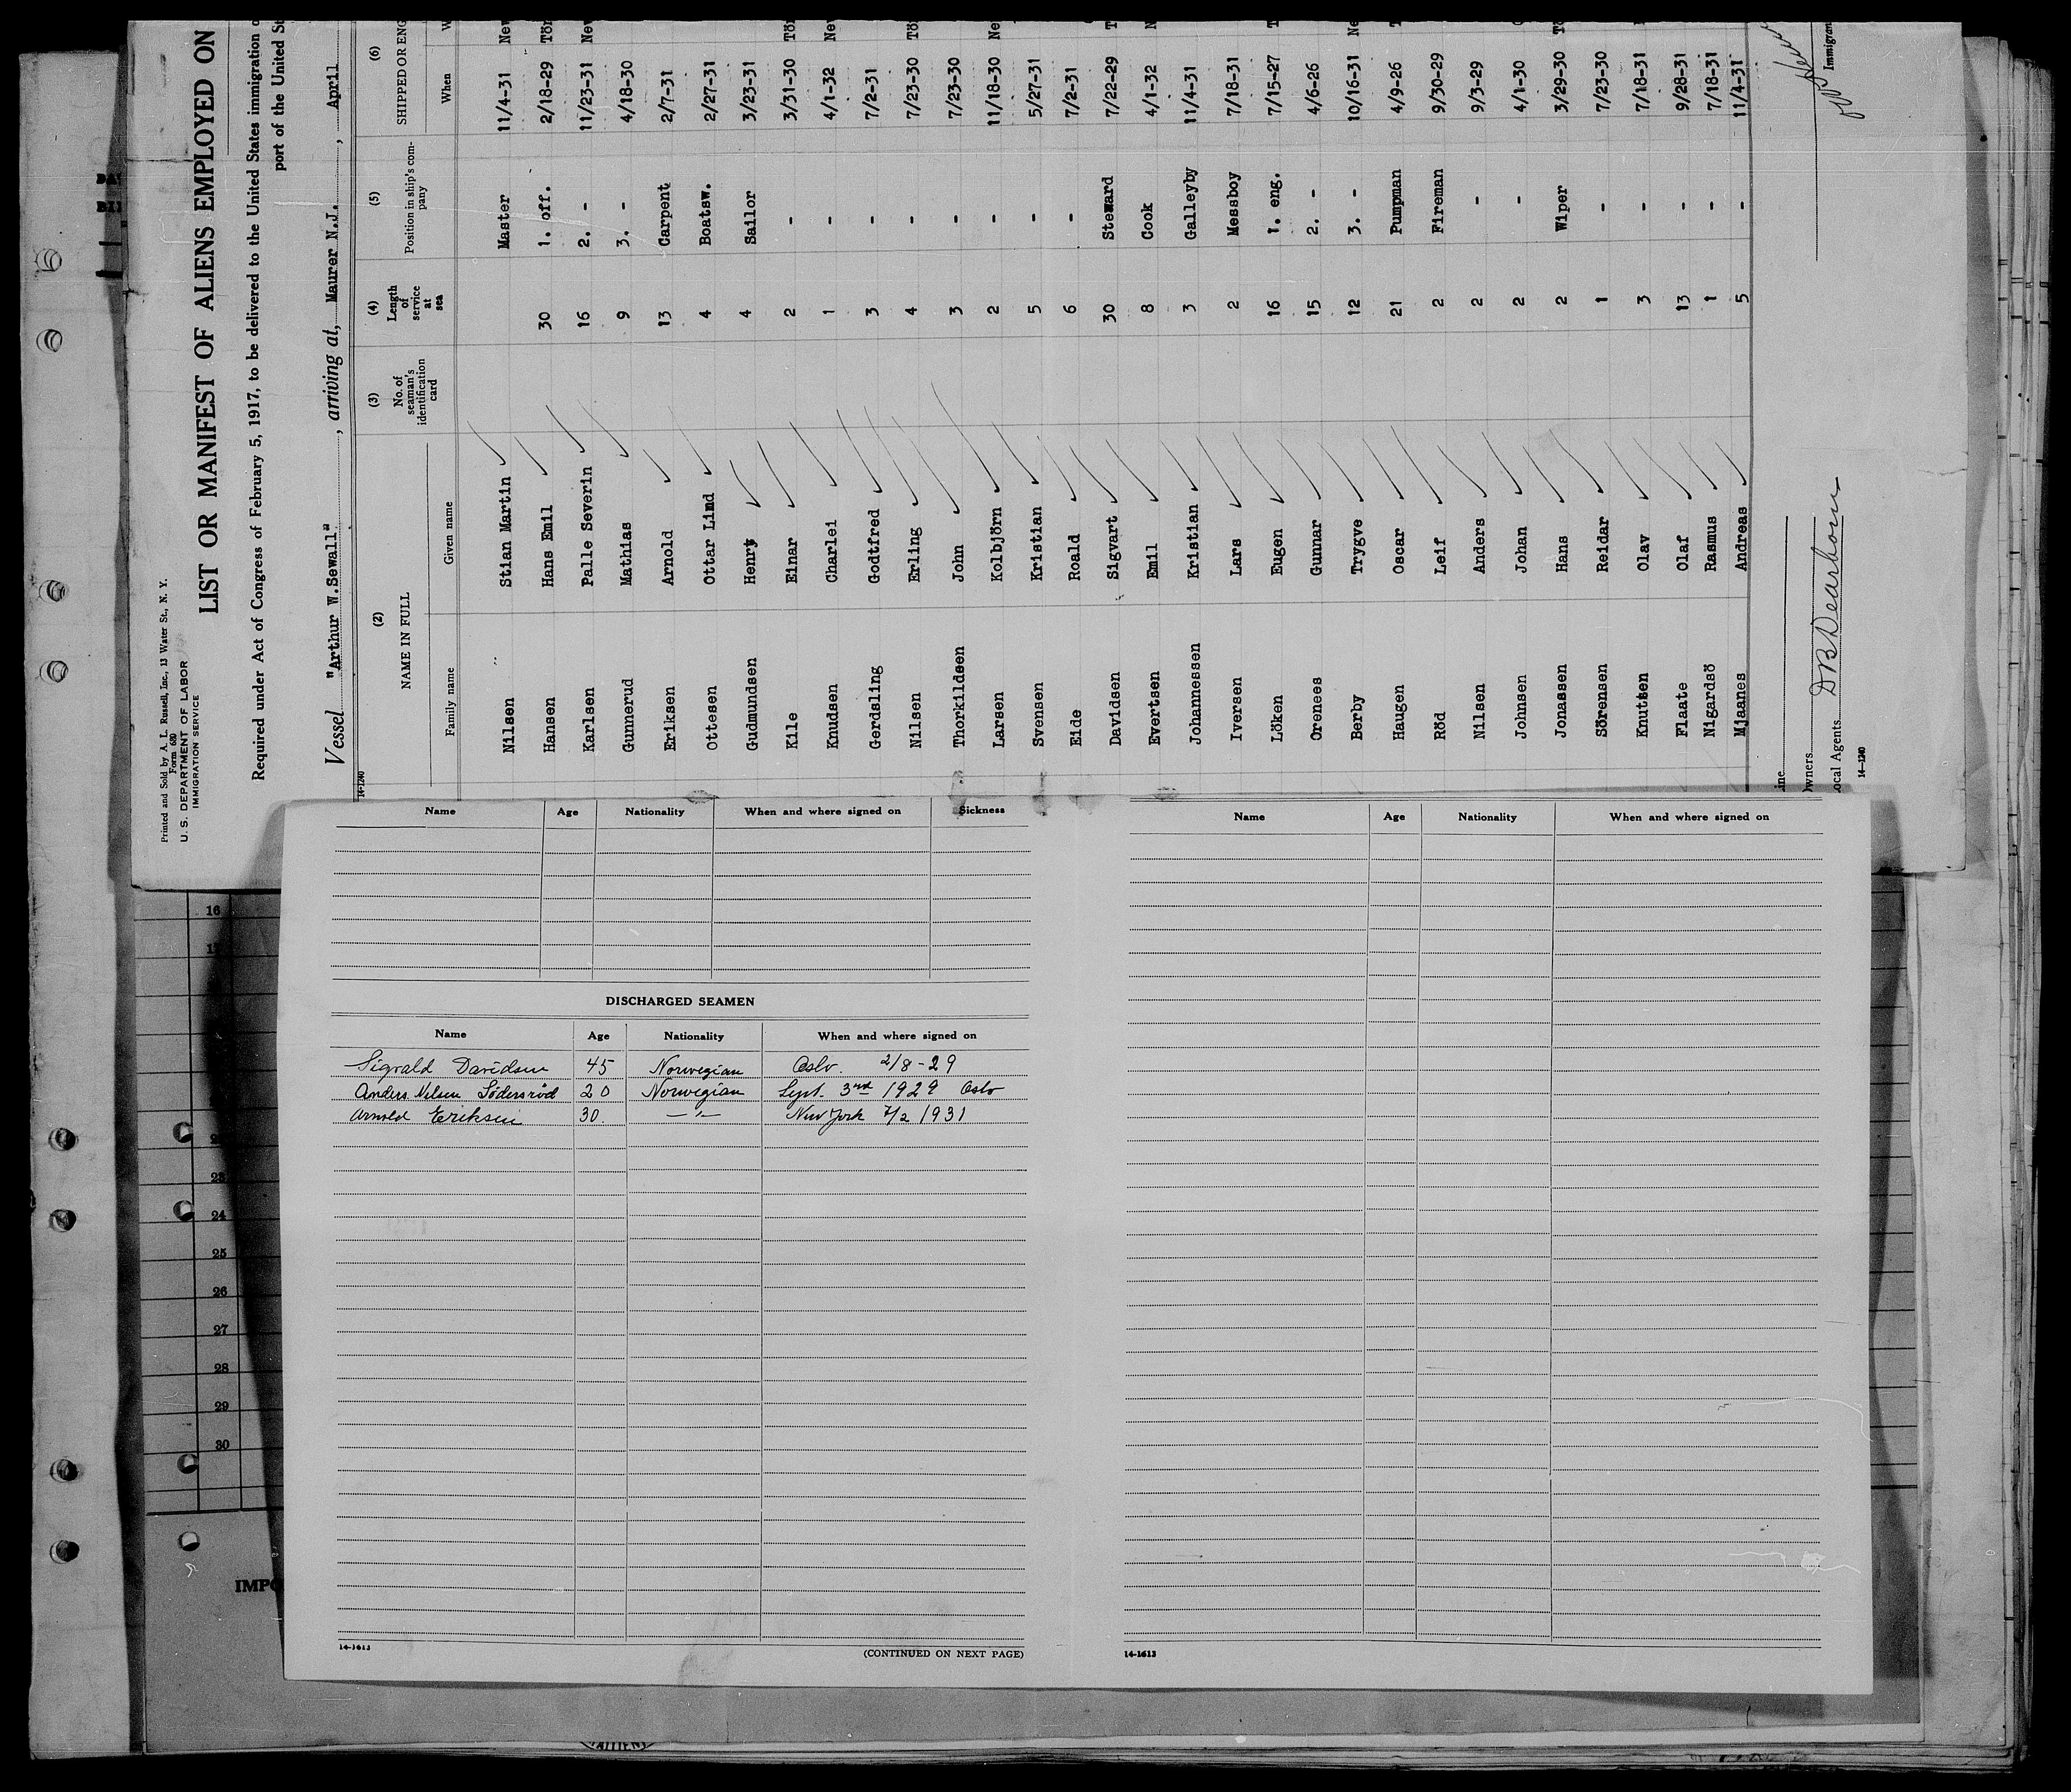 Printed and Sold by A. L. Russell, Inc., 13 Water St., N. Y.
Form 680
U. S. DEPARTMENT OF LABOR
IMMIGRATION SERVICE
LIST OR MANIFEST OF ALIENS EMPLOYED ON
Required under Act of Congress of February 5, 1917, to be delivered to the United States immigration
port of the United
Vessel "Arthur W.Sewall", arriving at, Maurer N.J., April
14-1240
(2) (3) (4) (5) (6)
NAME IN FULL No. of seaman's identification card Length of service at sea Position in ship's company SHIPPED OR
Family name Given name When
Nilsen Stian Martin Master 11/4-31
Hansen Hans Emil 30 1. off. 2/18-29
Karlsen Palle Severin 16 2. - 11/23-31
Gunnerud Mathias 9 3. - 4/18-30
Eriksen Arnold 13 Carpent 2/7-31
Ottesen Ottar Lind 4 Boatsw. 2/27-31
Gudmundsen Henry 4 Sailor 3/23-31
Kile Einar 2 - 3/31-30
Knudsen Charlei 1 - 4/1-32
Gerdsling Godtfred 3 - 7/2-31
Nilsen Erling 4 - 7/23-30
Thorkildsen John 3 - 7/23-30
Larsen Kolbjörn 2 - 11/18-30
Svensen Kristian 5 - 5/27-31
Eide Roald 6 - 7/2-31
Davidsen Sigvart 30 Steward 7/22-29
Evertsen Emil 8 Cook 4/1-32
Johannessen Kristian 3 Galleyby 11/4-31
Iversen Lars 2 Messboy 7/18-31
Löken Eugen 16 1. eng. 7/15-27
Orenees Gunnar 15 2. - 4/6-26
Berby Trygve 12 3. - 10/16-31
Haugen Oscar 21 Pumpman 4/9-26
Röd Leif 2 Fireman 9/30-29
Nilsen Anders 2 - 9/3-29
Johnsen Johan 2 - 4/1-30
Jonassen Hans 2 Wiper 3/29-30
Sörensen Reidar 1 - 7/23-30
Knutten Olav 3 - 7/18-31
Flaate Olaf 13 - 9/28-31
Nigardsö Rasmus 1 - 7/18-31
Mjaanes Andreas 5 - 11/4-31
Local Agents D B Dearborn
Immigrant
14-1240
Name Age Nationality When and where signed on Sickness
DISCHARGED SEAMEN
Name Age Nationality When and where signed on
Sigvald Davidsen 45 Norwegian Oslo. 2/8-29
Anders Nilsen Södersröd 20 Norwegian Sept. 3rd 1929 Oslo
Arnold Eriksen 30. -"- New York 7/2 1931
14-1613
(CONTINUED ON NEXT PAGE)
Name Age Nationality When and where signed on
14-1613
16
23
24
25
26
27
28
29
30